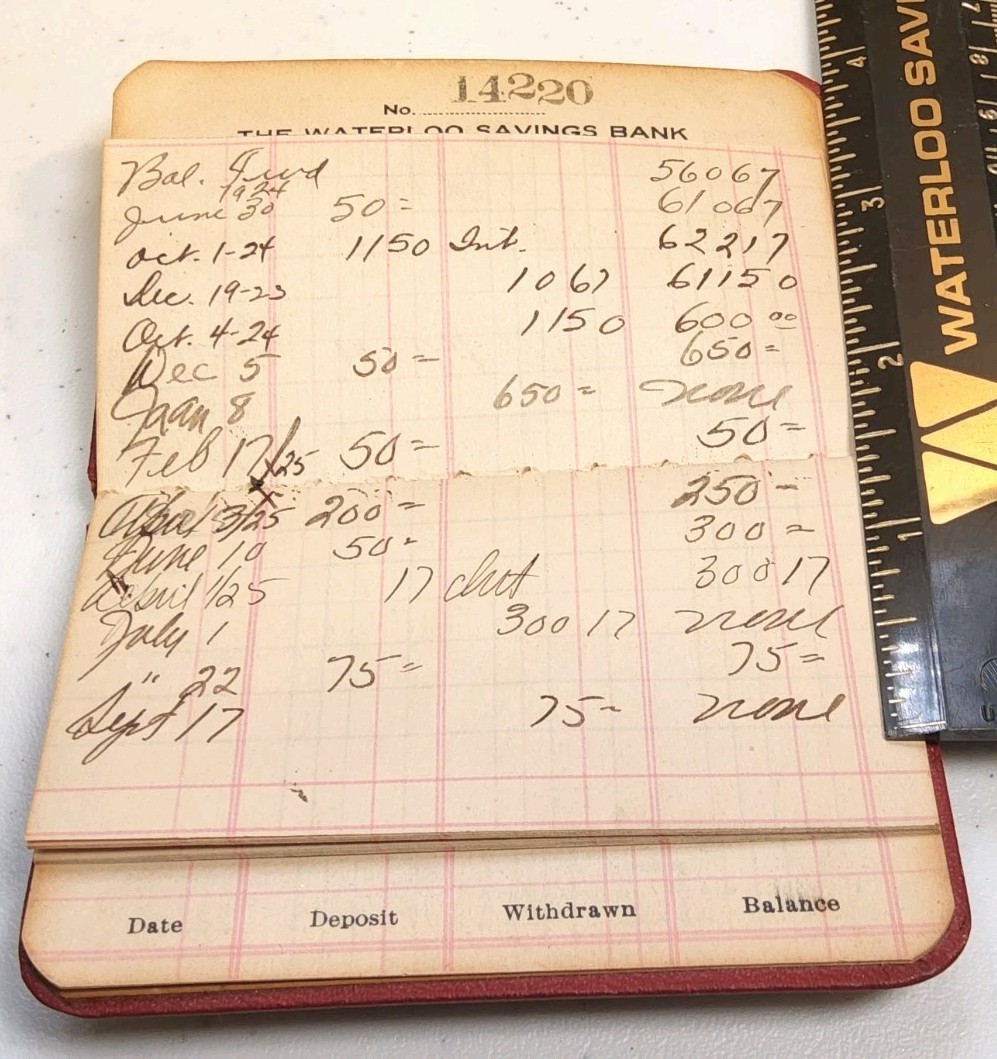 No. 14220
THE WATERLOO SAVINGS BANK
Bal. Fwd 56067
1924
June 30 50= 61067
Oct. 1-24 1150 Int. 62217
Dec. 19-23 1067 61150
Oct. 4-24 1150 600 00
Dec 5 50= 650=
Jaan 8 650= none
Feb 17/25 50= 50=
3/25 200= 250=
June 10 50= 300=
April 1/25 17 300 17
July 1 300 17 none
" 22 75= 75=
Sept 17 75= none
Date Deposit Withdrawn Balance
WATERLOO SAVI
4
3
2
1